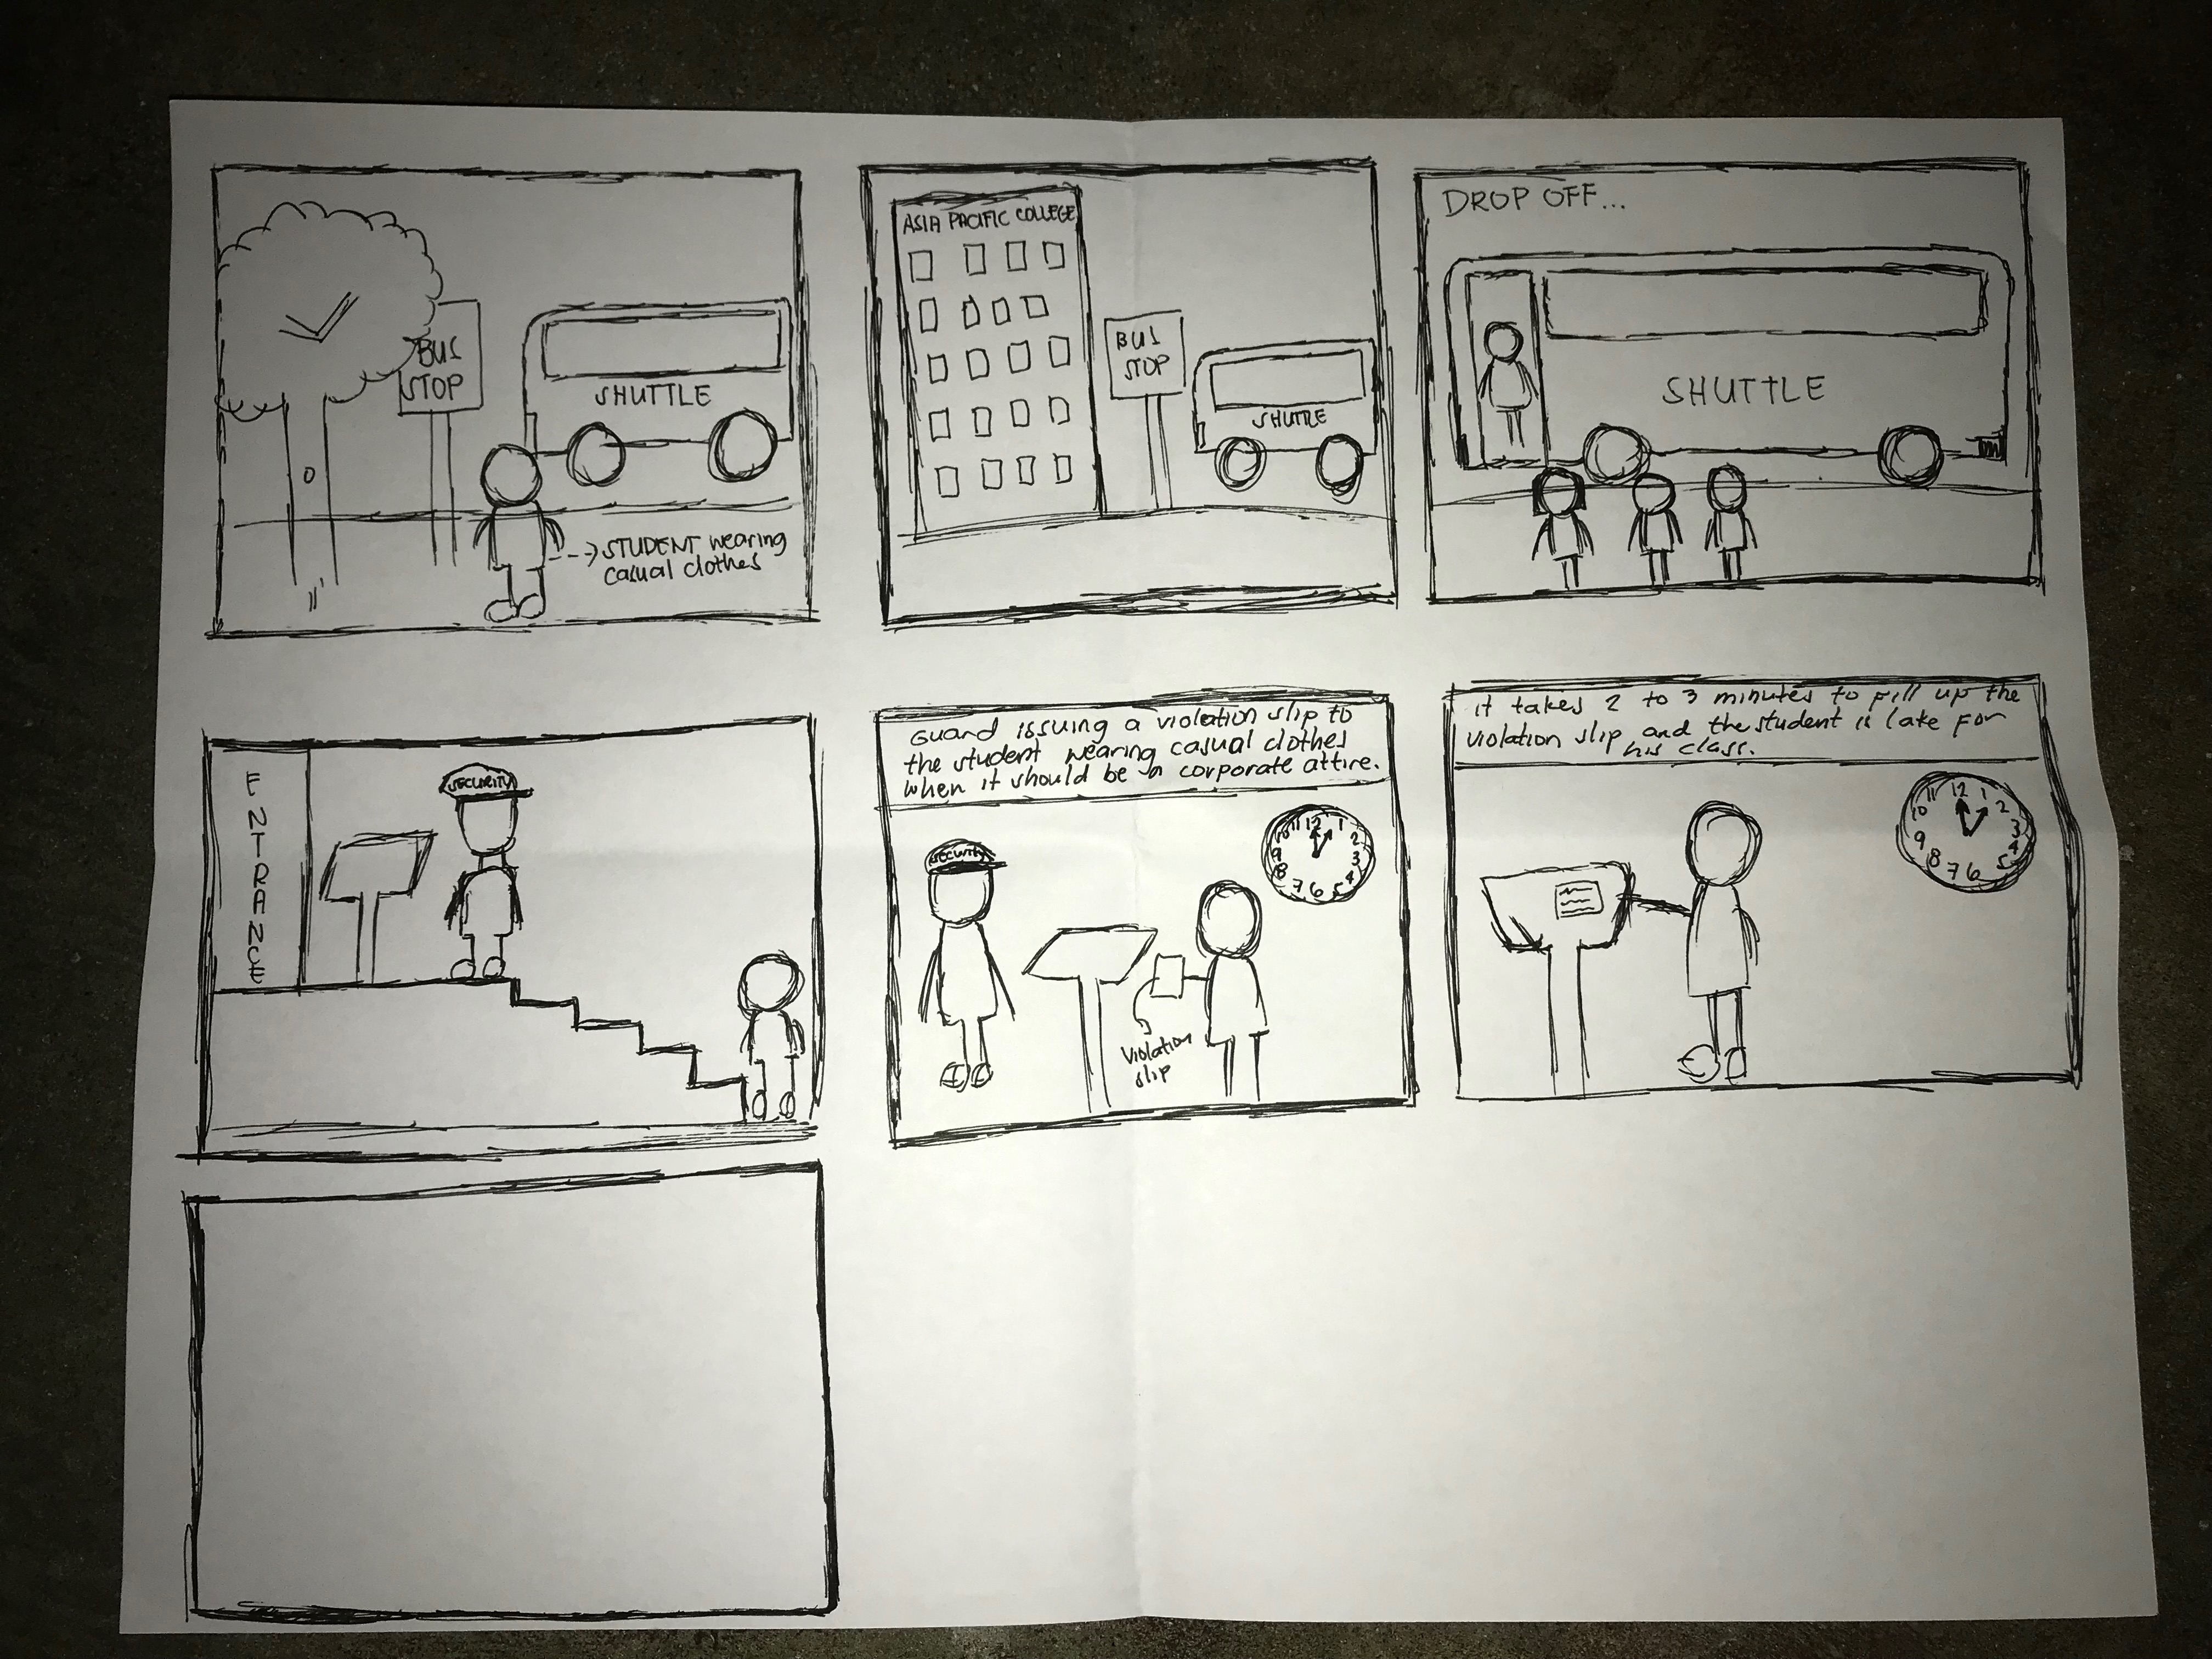 BUS
STOP
SHUTTLE
--> STUDENT wearing
casual clothes
ASIA PACIFIC COLLEGE
BUS
STOP
SHUTTLE
DROP OFF...
SHUTTLE
ENTRANCE
SECURITY
Guard issuing a violation slip to
the student wearing casual clothes
when it should be in corporate attire.
SECURITY
Violation
slip
12
1
2
3
4
5
6
7
8
9
10
11
it takes 2 to 3 minutes to fill up the
violation slip and the student is late for
his class.
12
1
2
3
4
5
6
7
8
9
10
11